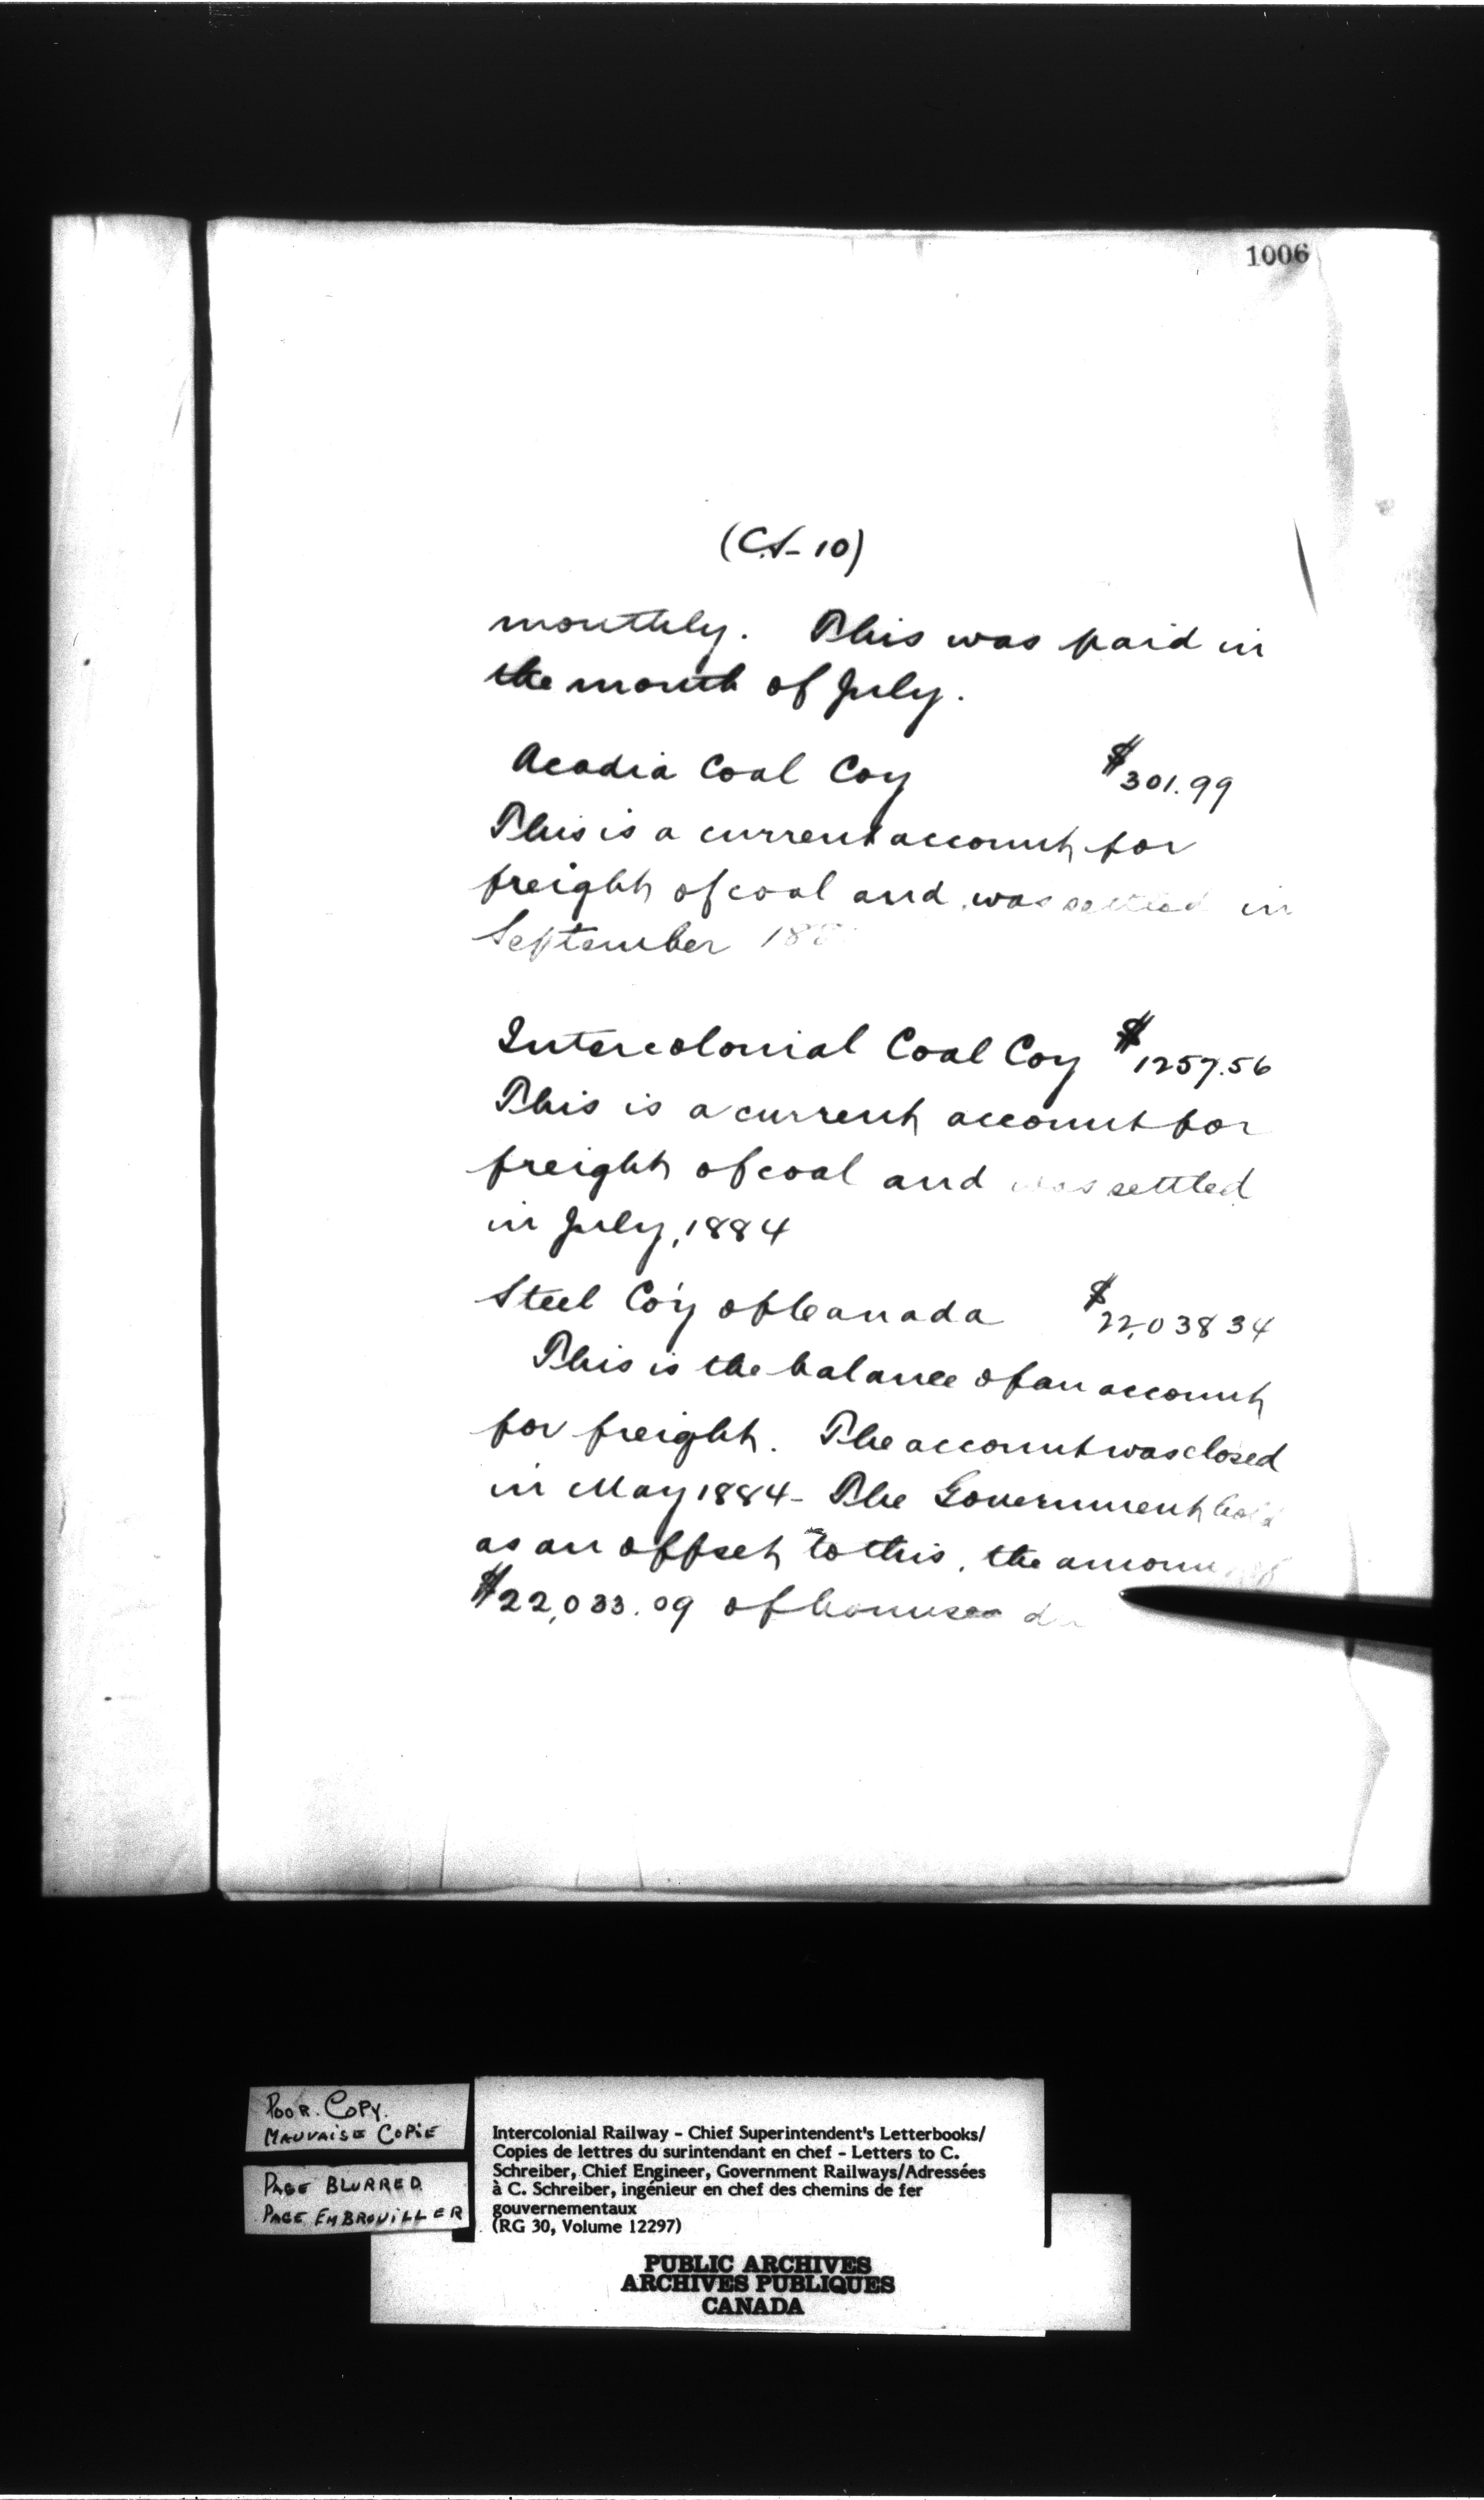 1006
(C.S-10)
monthly. This was paid in
the month of July.
Acadia Coal Coy $301.99
This is a current account for
freight of coal and was settled in
September 188
Intercolonial Coal Coy $1257.56
This is a current account for
freight of coal and was settled
in July, 1884
Steel Co'y of Canada $22,038 34
This is the balance of an account
for freight. The account was closed
in May 1884 - The Government hold
as an offset to this, the amount of
$22,033.09 of bonuses
POOR. COPY.
MAUVAISE COPIE
PAGE BLURRED
PAGE EMBROUILLER
Intercolonial Railway - Chief Superintendent's Letterbooks/
Copies de lettres du surintendant en chef - Letters to C.
Schreiber, Chief Engineer, Government Railways/Adressées
à C. Schreiber, ingénieur en chef des chemins de fer
gouvernementaux
(RG 30, Volume 12297)
PUBLIC ARCHIVES
ARCHIVES PUBLIQUES
CANADA